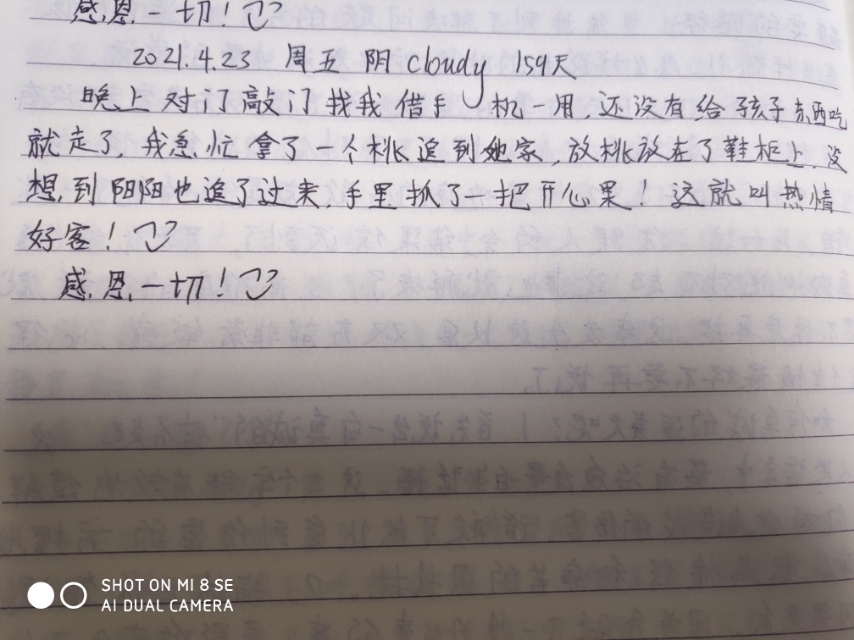 感恩一切！
2021.4.23 周五 阴 cloudy 159天
晚上对门敲门找我借手机一用，还没有给孩子东西吃
就走了，我急忙拿了一个桃追到她家，放桃放在了鞋柜上，没
想到阳阳也追了过来，手里抓了一把开心果！这就叫热情
好客！
感恩一切！
SHOT ON MI 8 SE
AI DUAL CAMERA